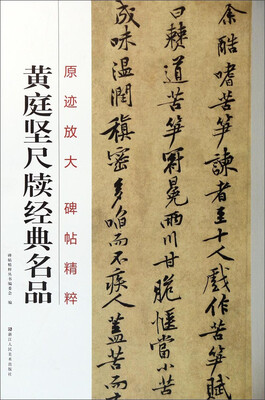 余酷嗜苦笋諫者至十人戲作苦笋賦
曰棘道苦笋冠冕兩川甘脆愜當小苦
成味温潤稹密多啗而不疾人蓋苦而
原迹放大 碑帖精粹
黄庭坚尺牍经典名品
碑帖精粹丛书编委会 编
浙江人民美术出版社